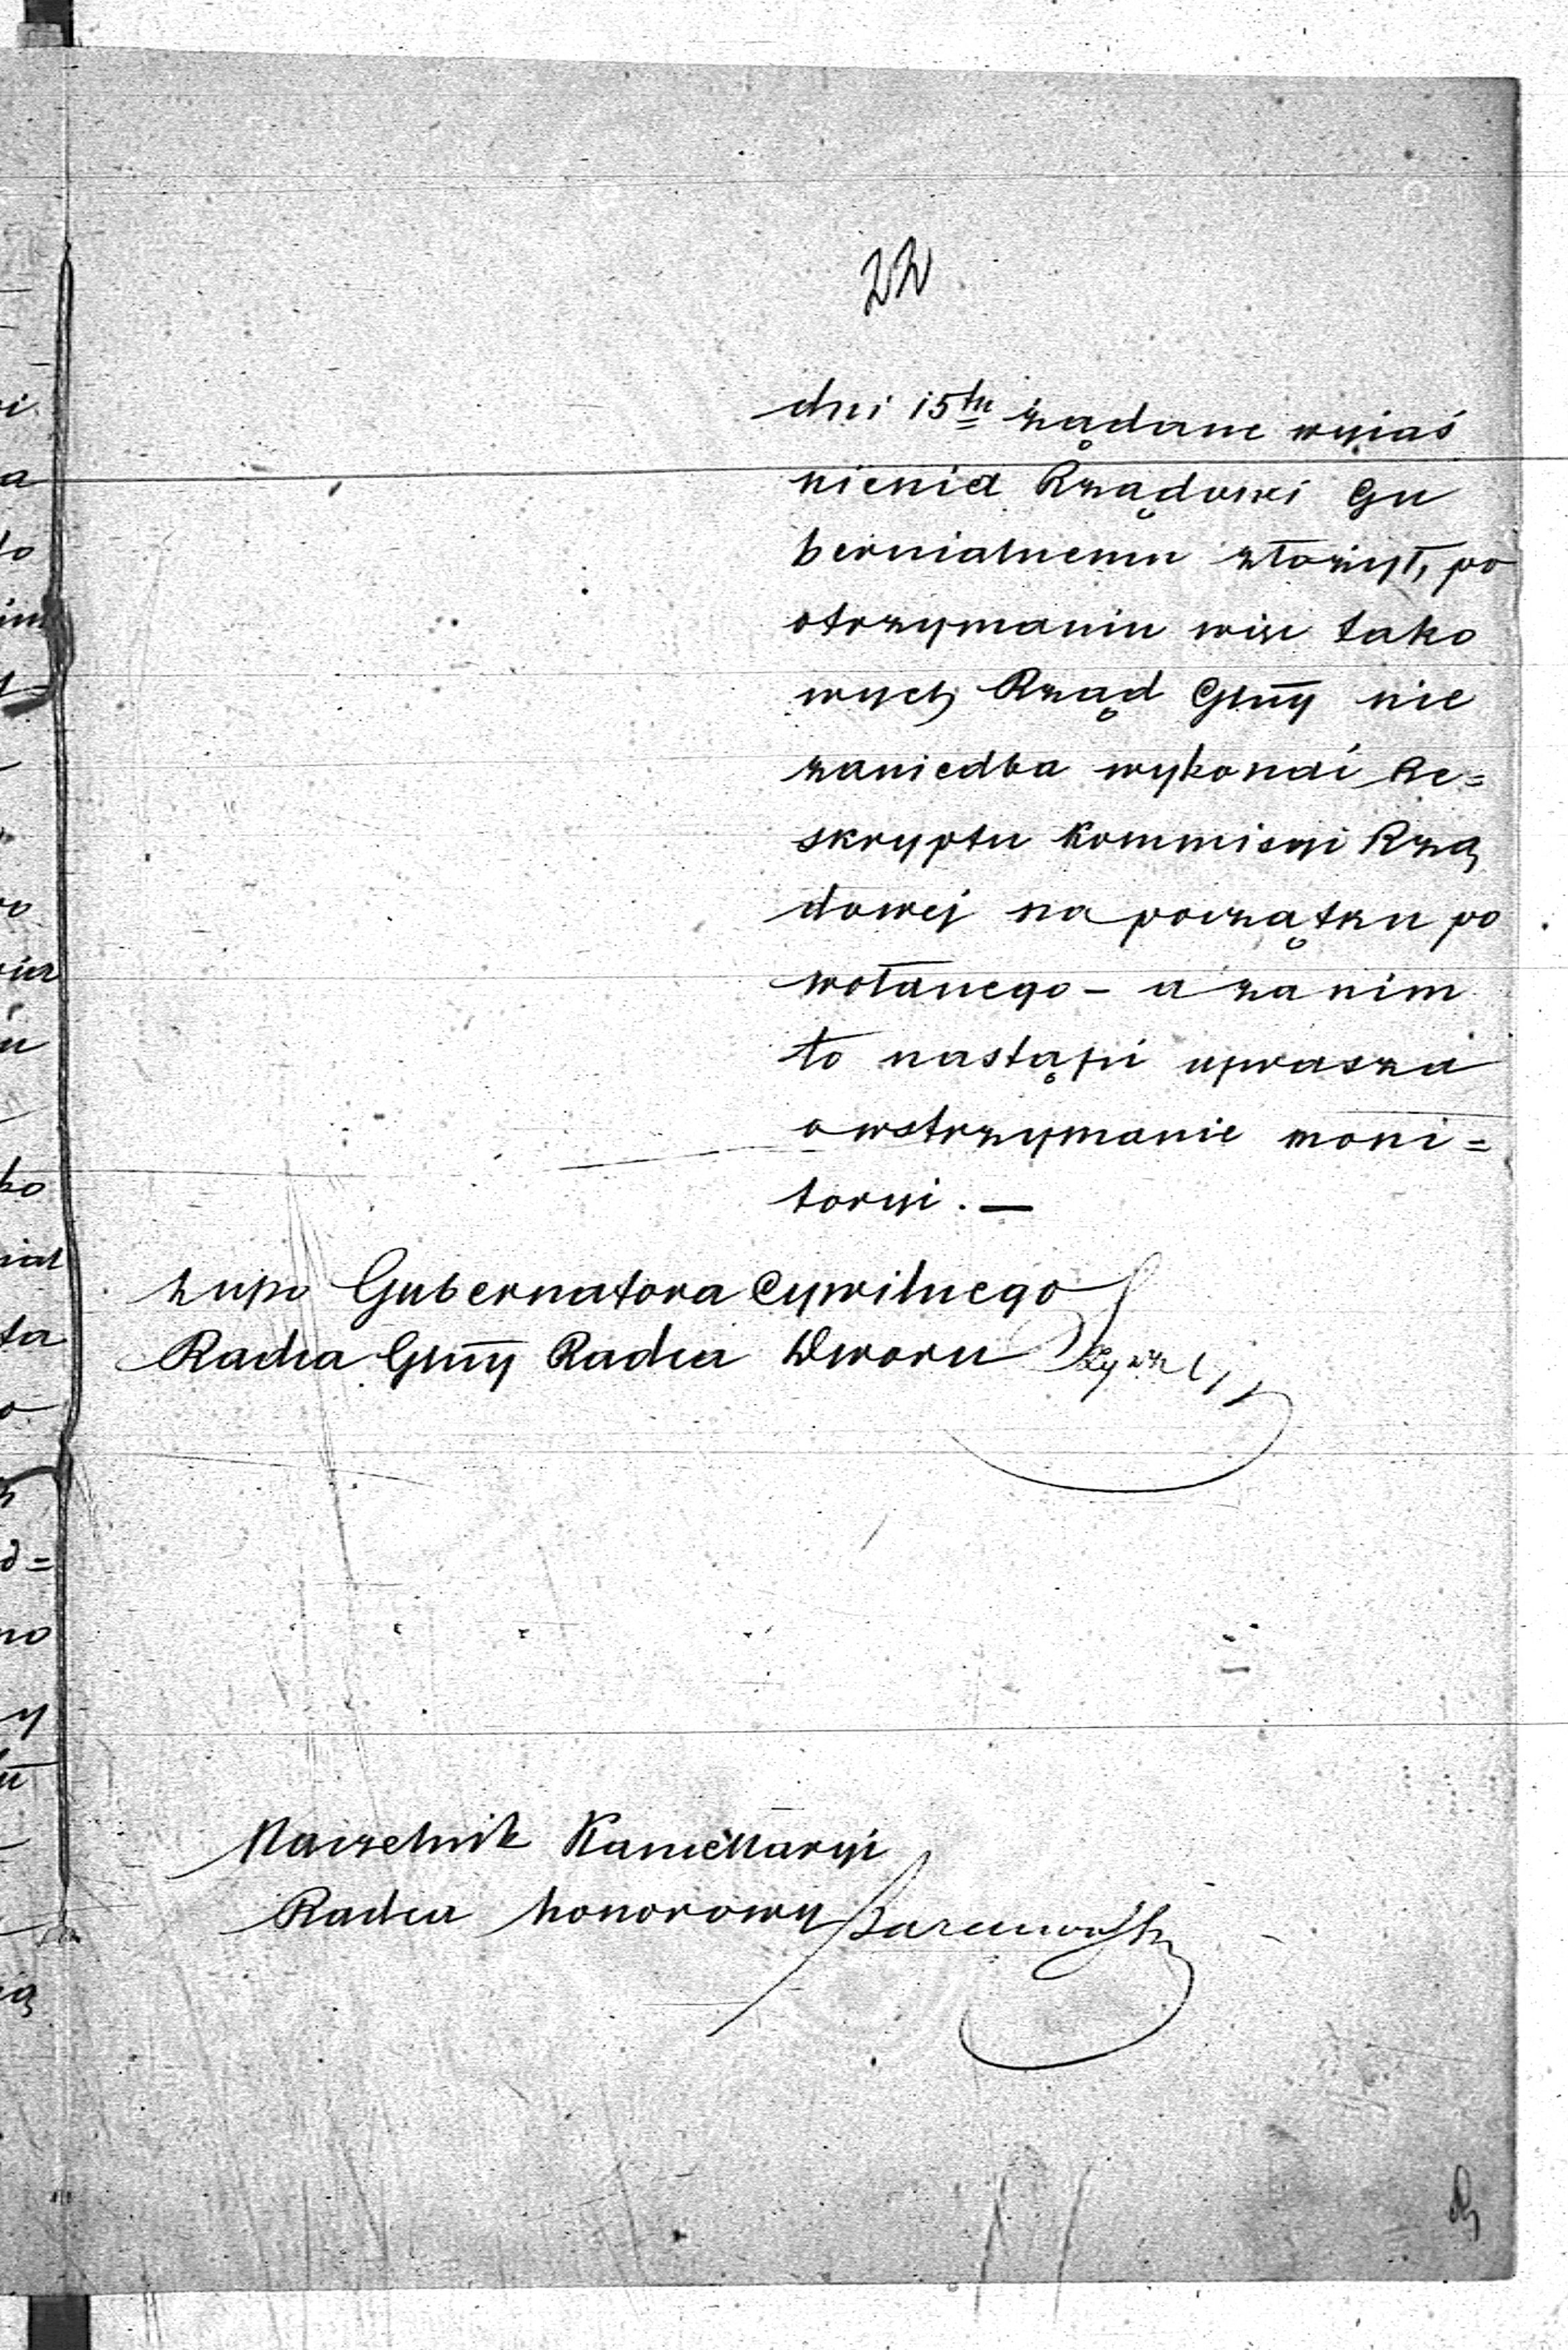 22
dni 15tu żądane wyiaś
nienia Rządowi Gu
bernialnemu złożył, po
otrzymaniu więc tako
wych Rząd Glny nie
zaniedba wykonać Re=
skryptu Kommisyi Rzą
dowej na początku po
wołanego – a za nim
to nastąpi uprasza
o wstrzymanie moni=
toryi. —
Gubernatora Cywilnego
Radca Glny Radca Dworu
Naczelnik Kancellaryi
Radca honorowy